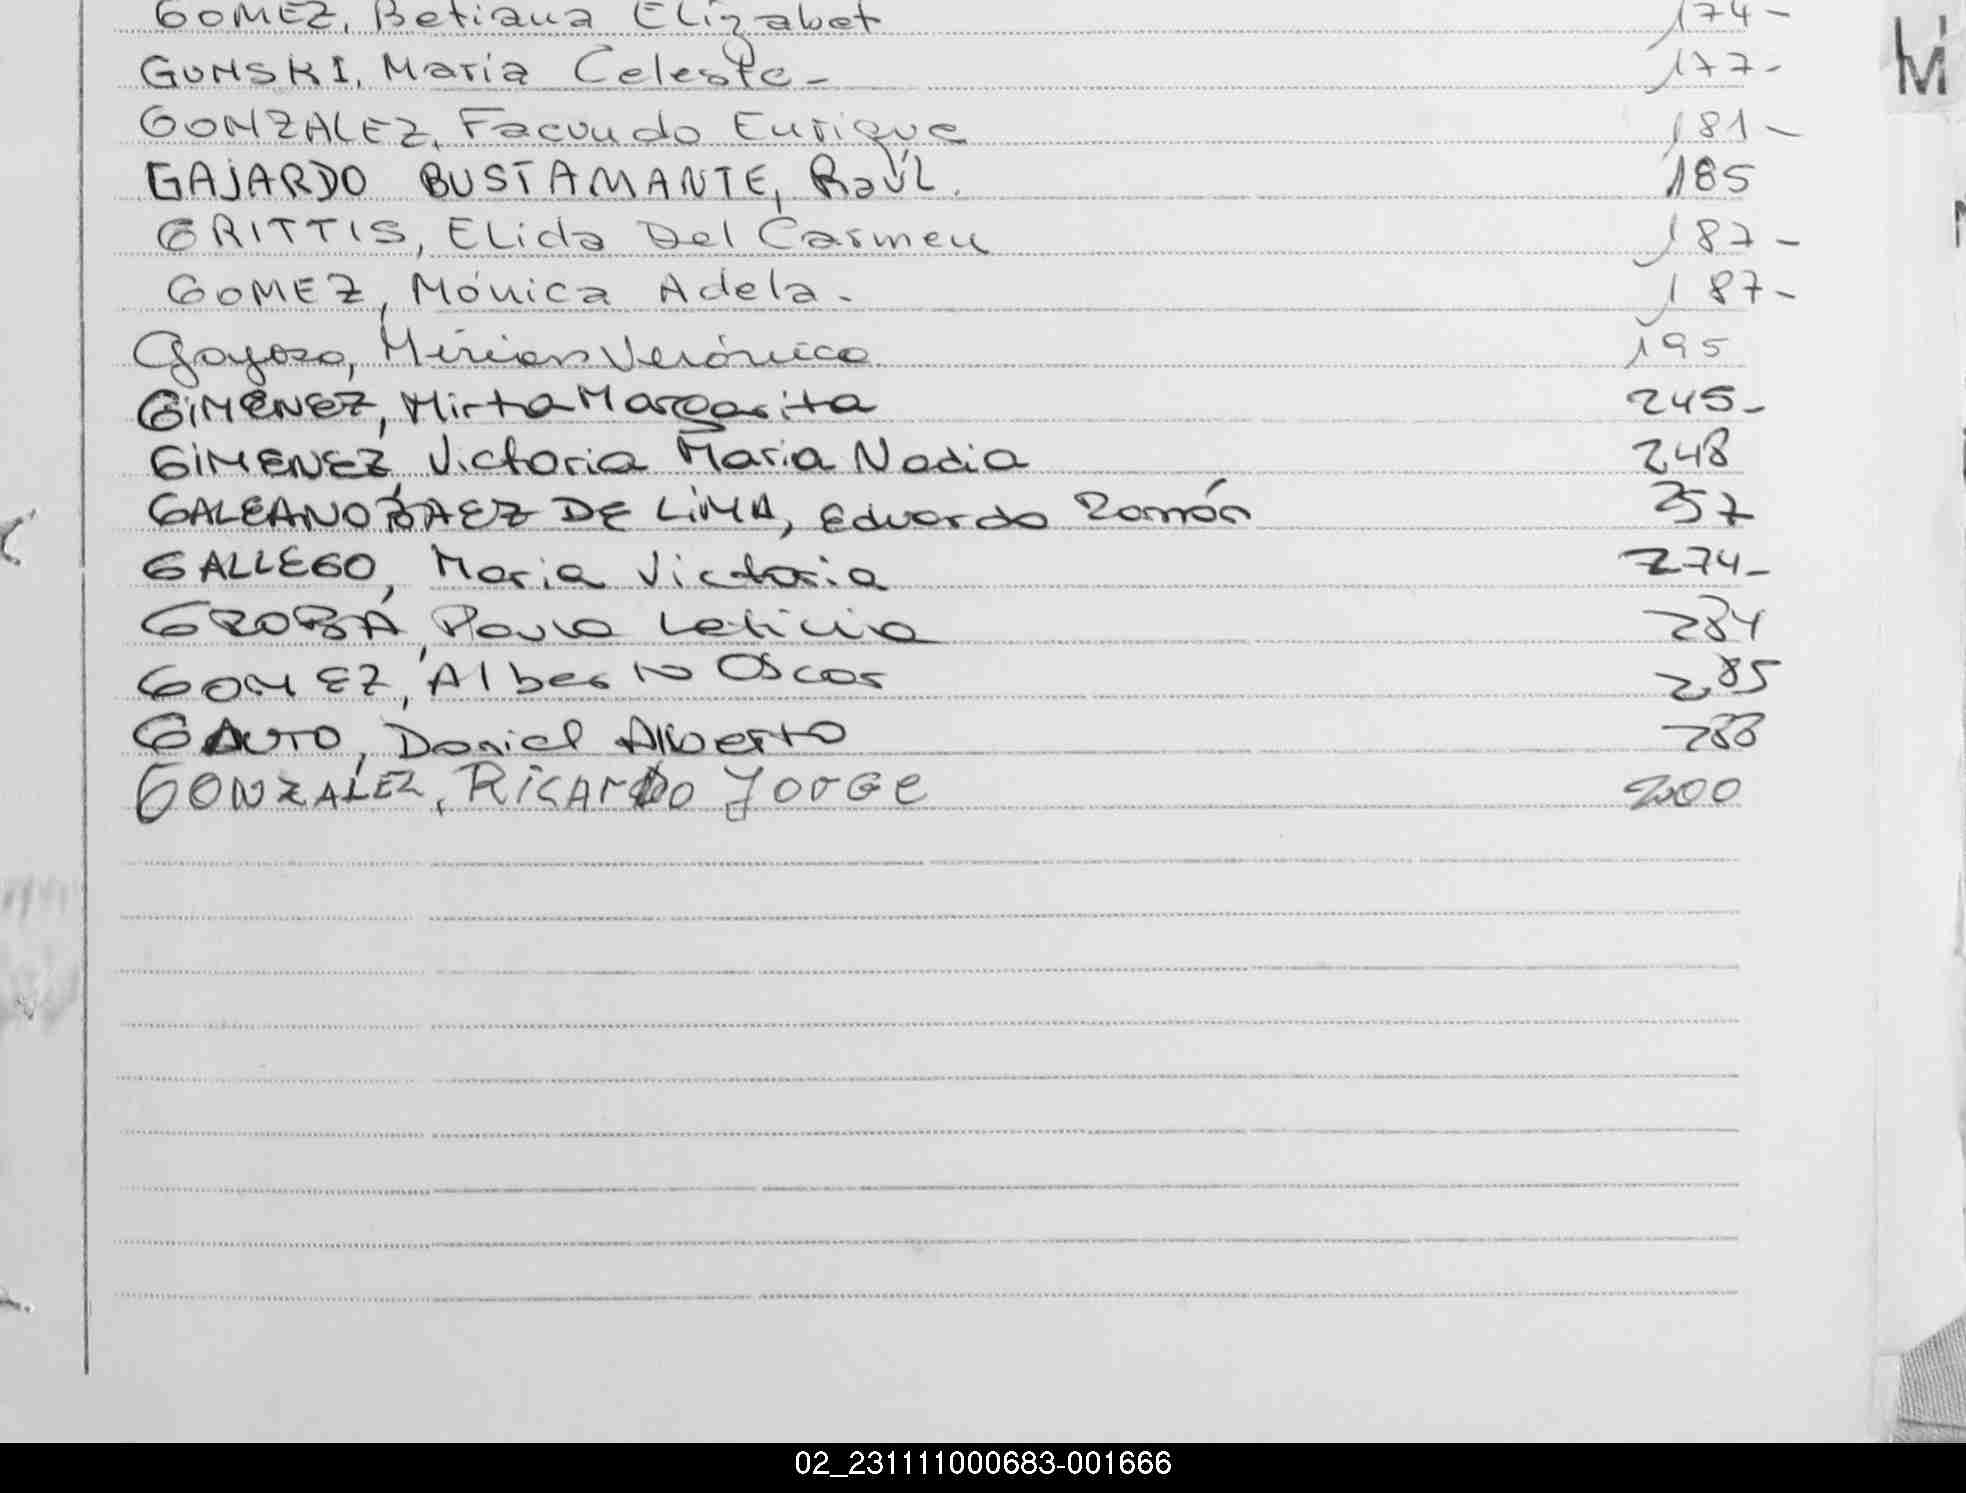 GOMEZ, Betiana Elizabet 174-
GUNSKI, María Celeste- 177-
GONZALEZ, Facundo Enrique 181-
GAJARDO BUSTAMANTE, Raúl. 185
GRITTIS, Elida Del Carmen 187-
GOMEZ, Mónica Adela. 187-
Gayoso, Mirian Verónica 195
GIMENEZ, Mirta Margarita 245-
GIMENEZ, Victoria Maria Nadia 248
GALEANO BAEZ DE LIMA, Eduardo Ramón 257
GALLEGO, Maria Victoria 274-
GROBA, Paula Leticia 284
GOMEZ, Alberto Oscar 285
GAUTO, Daniel Alberto 288
GONZALEZ, Ricardo Jorge 200
02_231111000683-001666